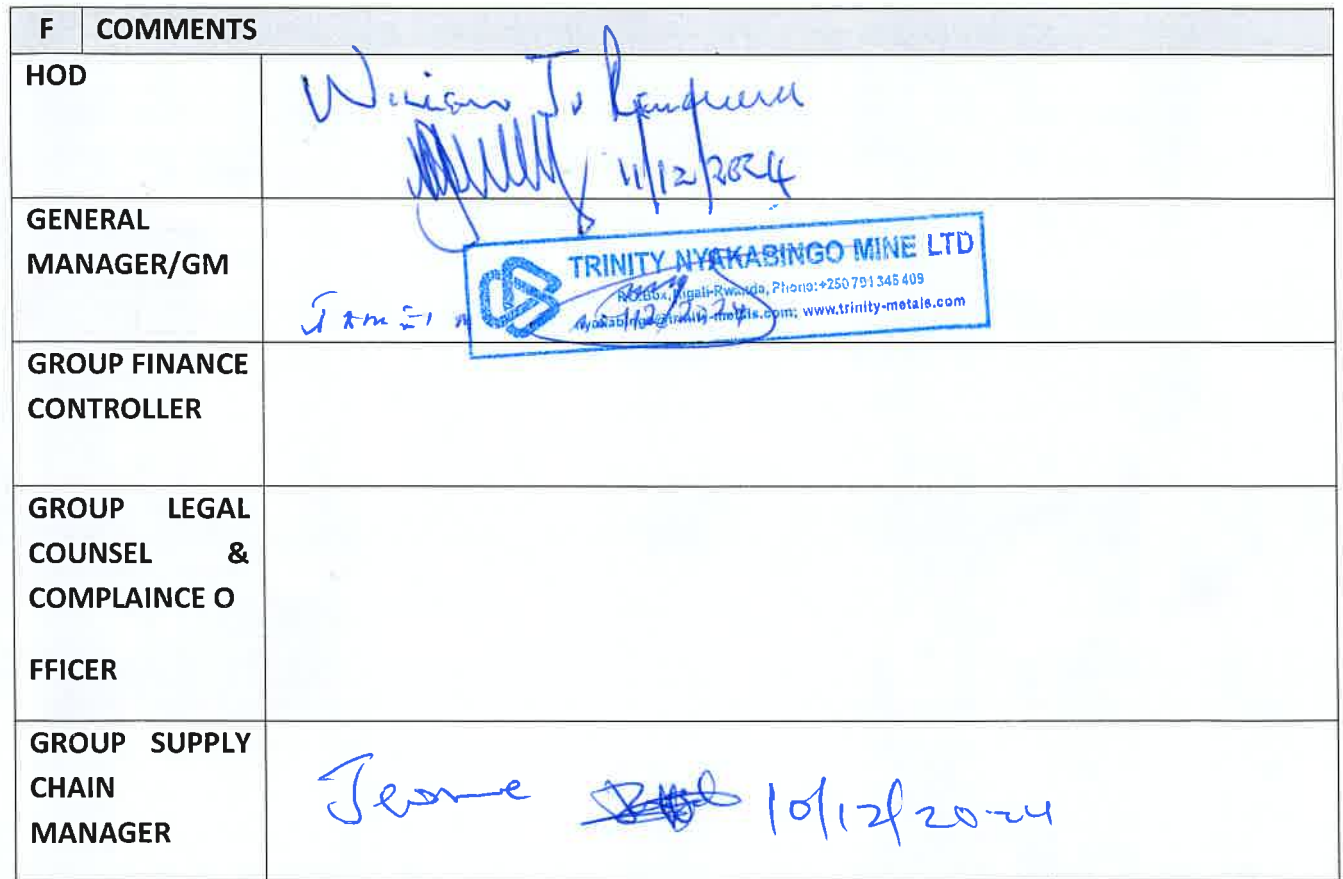 F COMMENTS
HOD
11/12/2024
GENERAL
MANAGER/GM
TRINITY NYAKABINGO MINE LTD
P.O.Box, Kigali-Rwanda, Phone:+250 791 345 409
nyakabingo@trinity-metals.com; www.trinity-metals.com
GROUP FINANCE
CONTROLLER
GROUP LEGAL
COUNSEL &
COMPLAINCE O
FFICER
GROUP SUPPLY
CHAIN
MANAGER
Jerome 10/12/2024